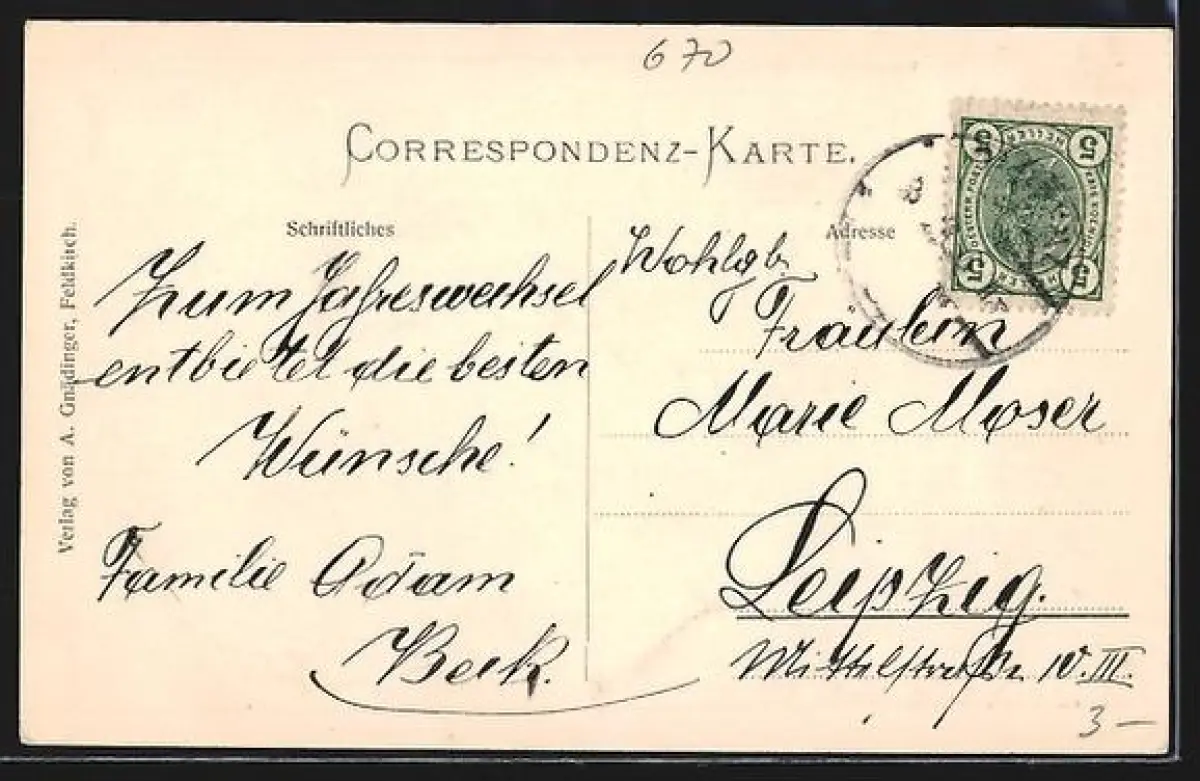 670
CORRESPONDENZ-KARTE.
Schriftliches
Adresse
Zum Jahreswechsel
entbietet die besten
Wünsche!
Familie Adam
Beck.
Wohlgb.
Fräulein
Marie Moser
Leipzig.
Mittelstraße 10. III.
3 —
Verlag von A. Gnädinger, Feldkirch.
5 5
5 5